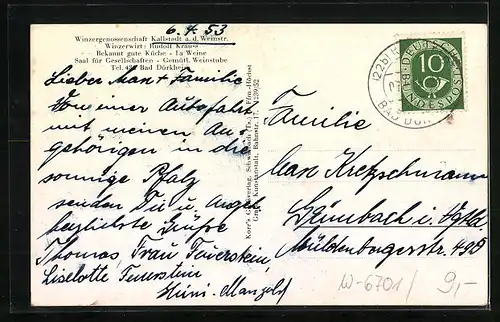 6.4.53
Winzergenossenschaft Kallstadt a. d. Weinstr.
Winzerwirt: Rudolf Krauss
Bekannt gute Küche - 1a Weine
Saal für Gesellschaften - Gemütl. Weinstube
Tel. Bad Dürkheim
Lieber Max + Familie
Von einer Autofahrt
mit meinen An-
gehörigen in die
sonnige Pfalz
senden Dir u. Angeh.
herzlichste Grüsse
Thomas, Frau Feuerstein,
Liselotte Feuerstein
Mangold
Korr's Gastverlag, Schwalbach (Ts.)
Graph. Kunstanstalt, Bahnstr. 17,
(22b)
BAD DÜR
DEUTSCHE
BUNDESPOST
10
Familie
Max Kretzschmann
Grünbach i. Vgtl.
Muldenbergerstr. 49
W-6701/
9,-